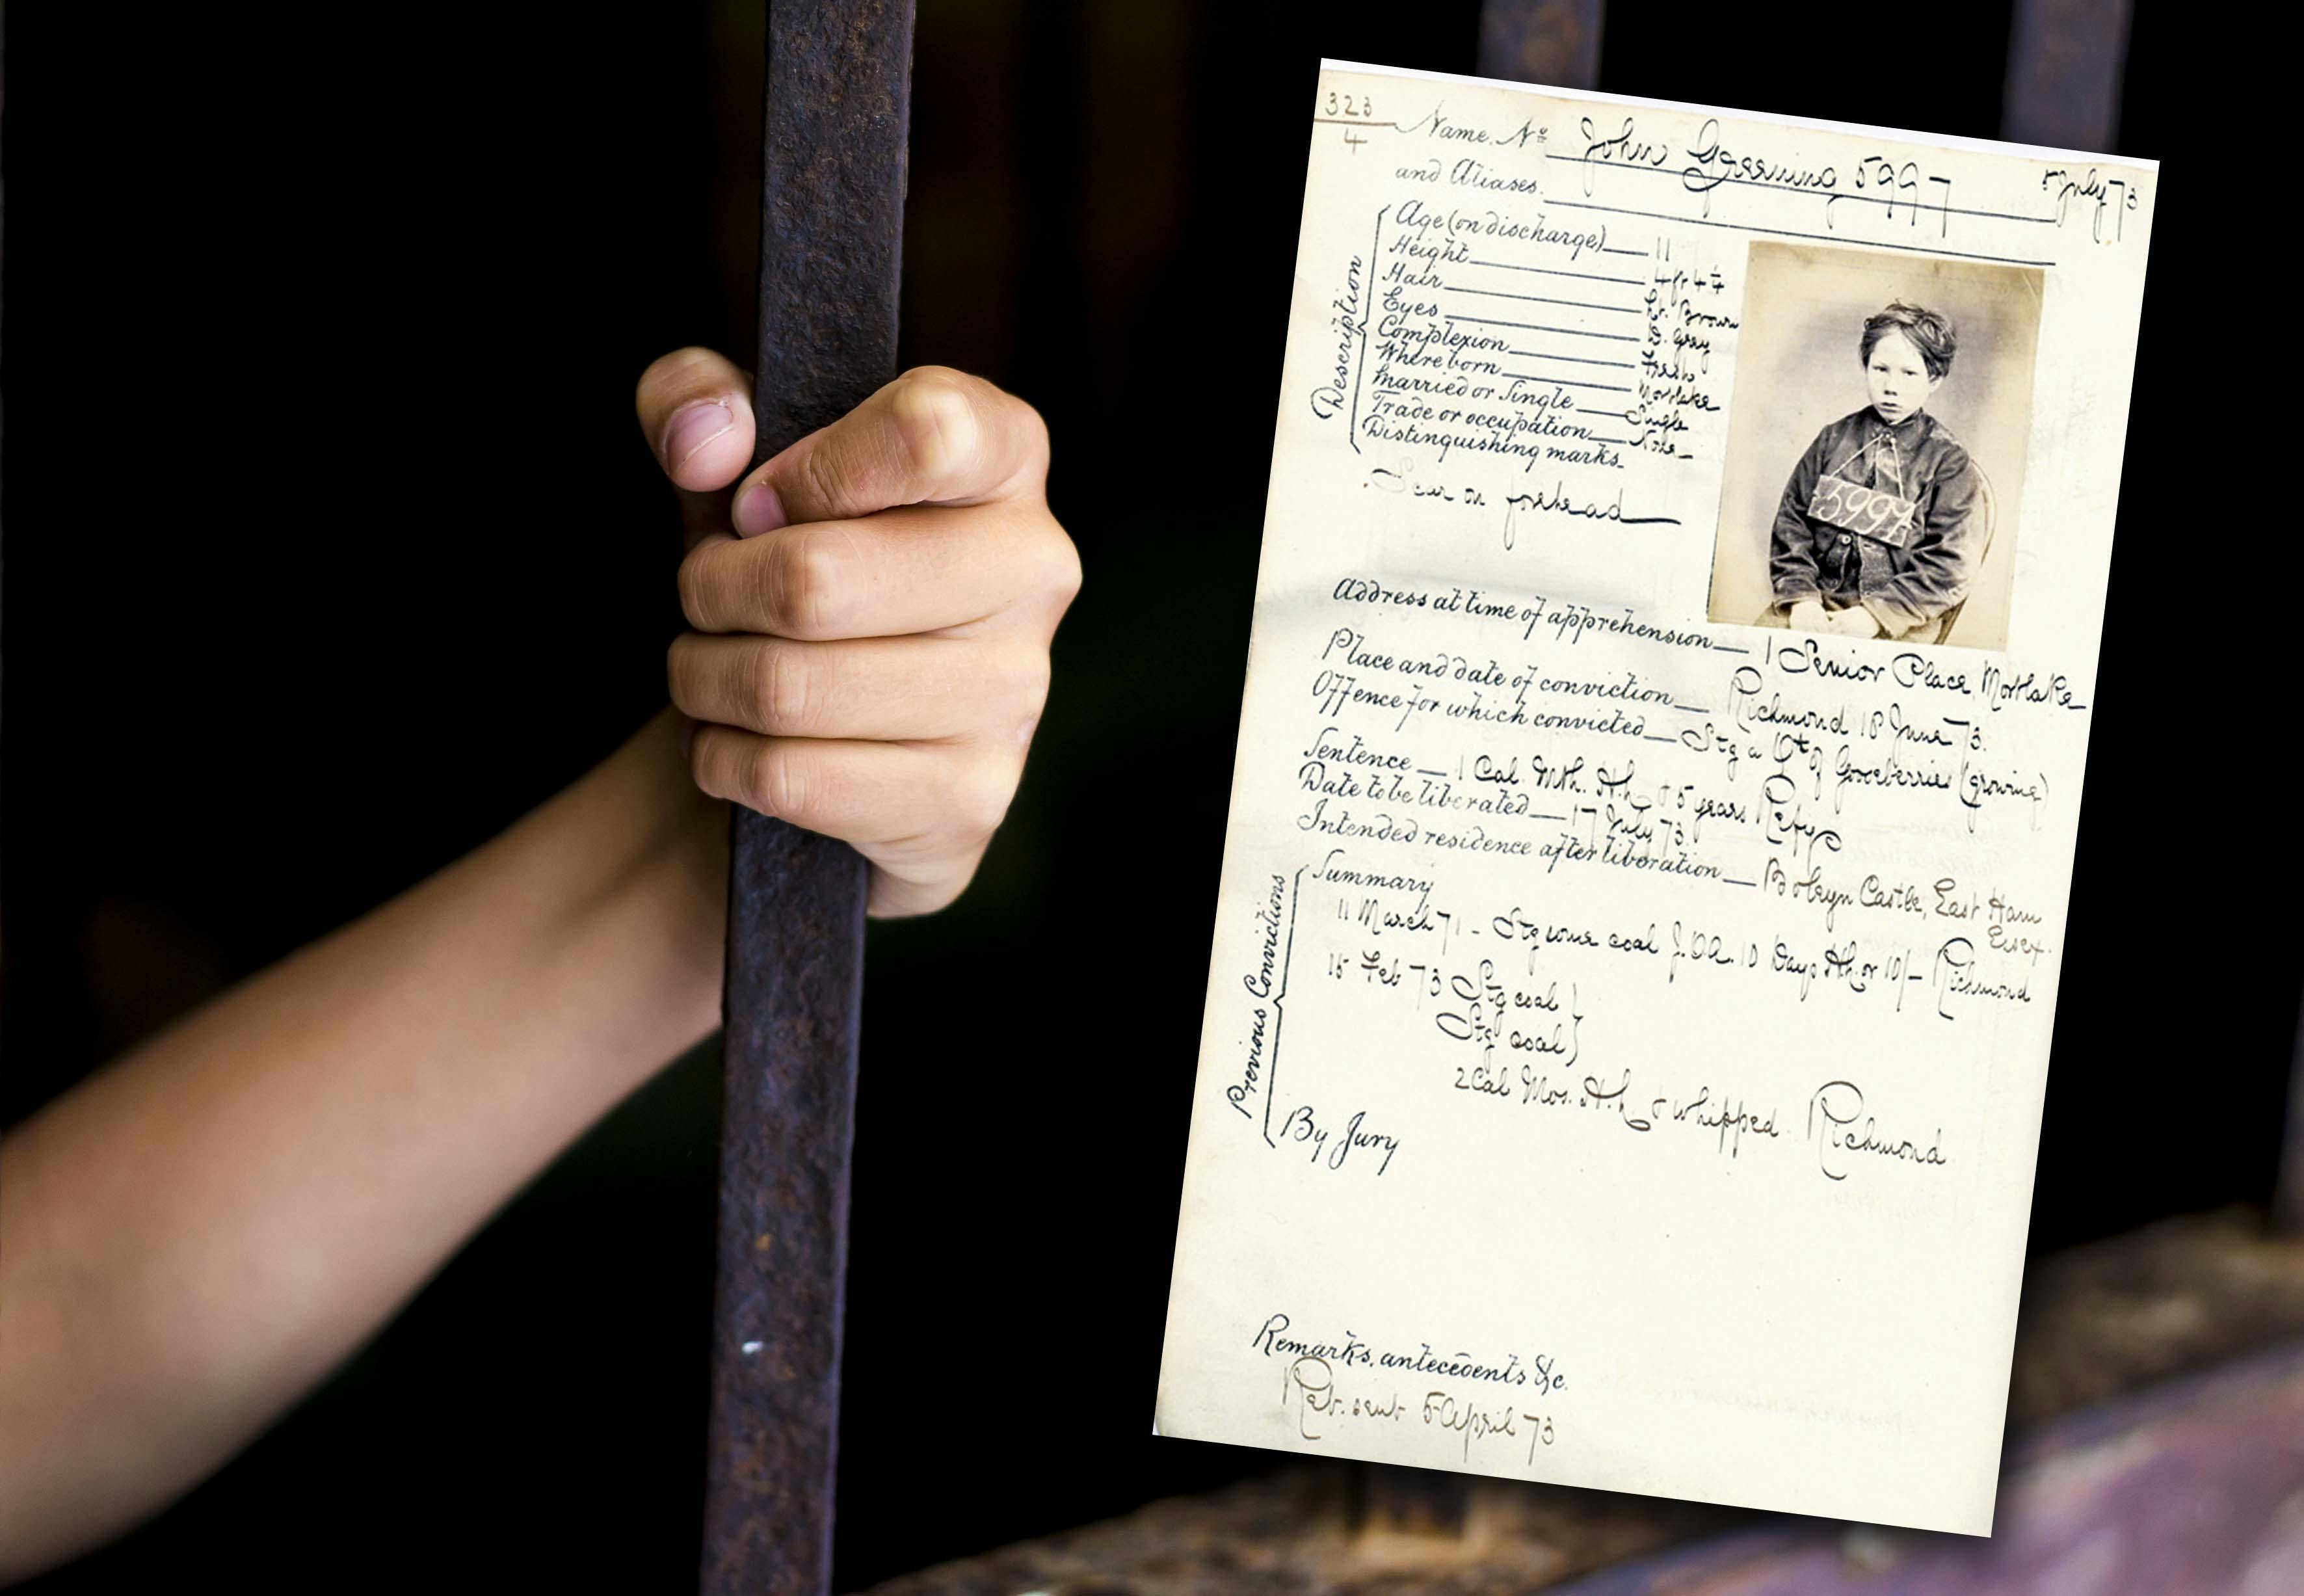 323
4
Name. No John Greening 5997 5 July 73
and Aliases.
Description
Age (on discharge) 11
Height 4 ft 4 1/4
Hair Lt. Brown
Eyes D. Gray
Complexion Fresh
Where born Mortlake
Married or Single Single
Trade or occupation None
Distinguishing marks.
Scar on forehead
5997
Address at time of apprehension 1 Senior Place, Mortlake
Place and date of conviction Richmond 18 June 73.
Offence for which convicted Stg a Qt of Gooseberries (growing)
Sentence 1 Cal. Mth. H.h & 5 years Refy
Date to be liberated 17 July 73
Intended residence after liberation Boleyn Castle, East Ham
Essex.
Previous Convictions
Summary
11 March 71 - Stg some coal J.O.A. 10 Days H.h or 10/- Richmond
15 Feb 73 Stg coal }
Stg coal }
2 Cal Mos. H.h & whipped. Richmond
By Jury
Remarks, antecedents &c.
sent 5 April 73